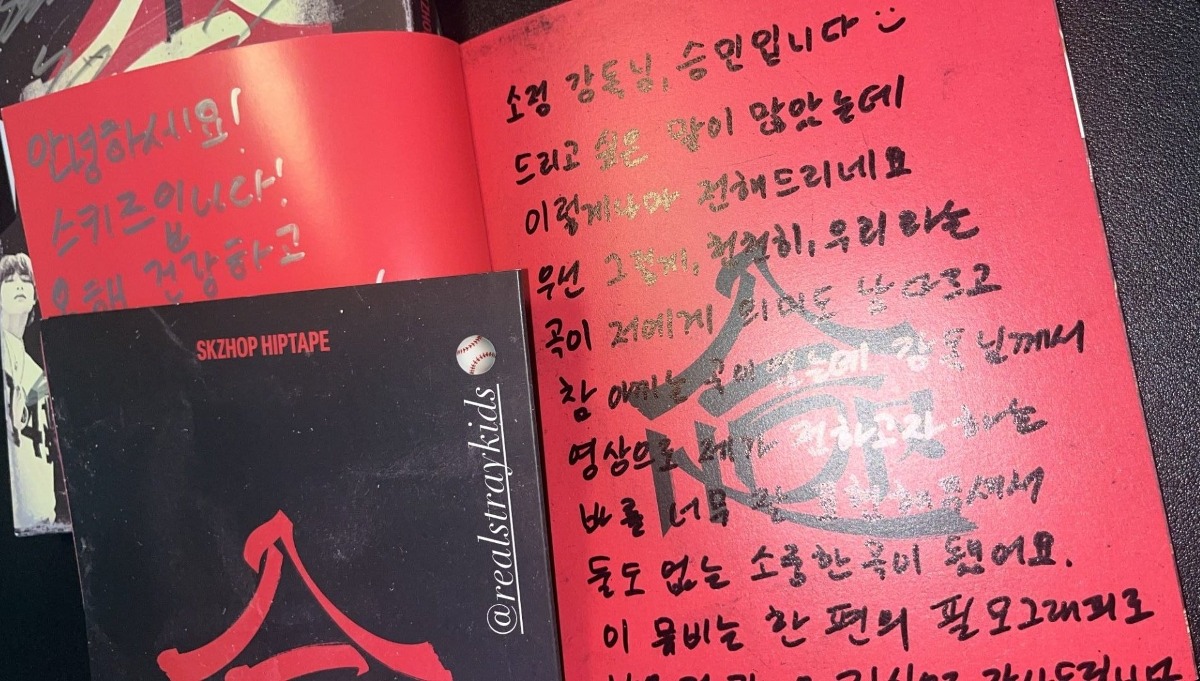 안녕하세요!
스키즈입니다!
올해 건강하고
SKZHOP HIPTAPE
@realstraykids
소정 감독님, 승민입니다 :)
드리고 싶은 말이 많았는데
이렇게나마 전해드리네요
우선 그렇게, 천천히, 우리 라는
곡이 저에게 의미도 남다르고
참 아끼는 곡이었는데 감독님께서
영상으로 제가 전하고자 하는
바를 너무 잘 표현해주셔서
둘도 없는 소중한 곡이 됐어요.
이 뮤비는 한 편의 필모그래피로
감사드립니다